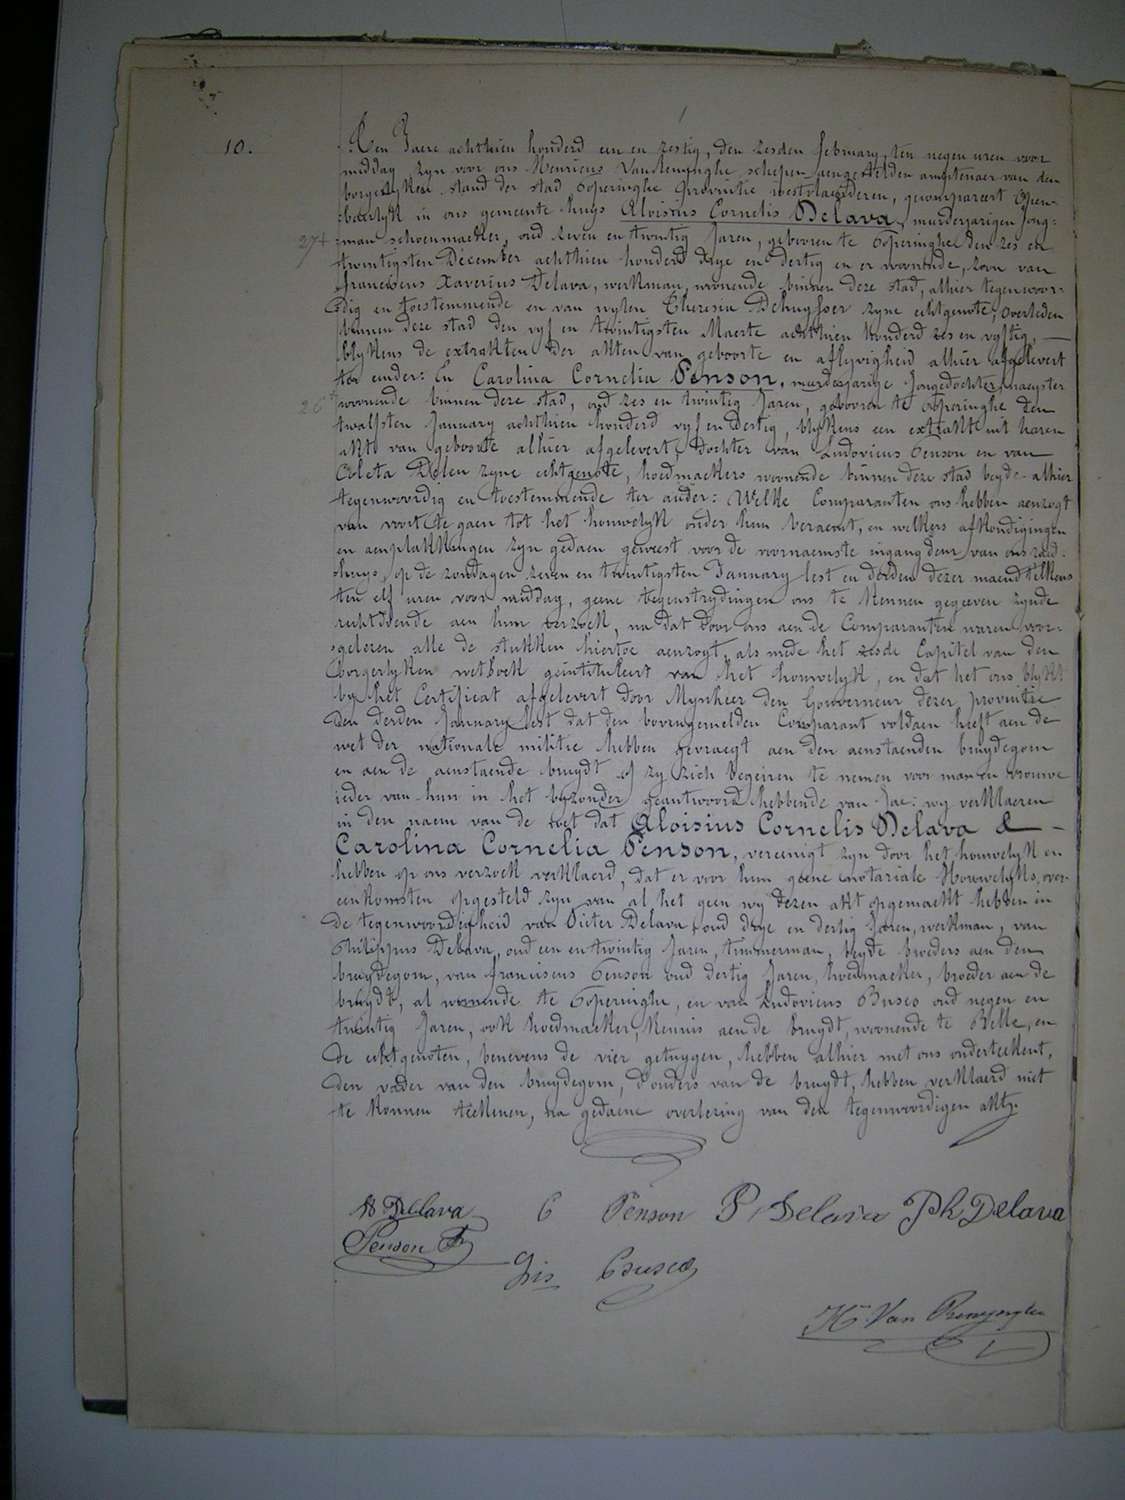 10.
Den Jaere achthien honderd een en zestig, den zesden february, ten negen uren voor
middag zyn voor ons Henricus schepen aengestelden amptenaer van den
borgerlyken stand der stad Poperinghe provintie westvlaenderen, gecompareert open-
-baerlyk in ons gemeente huys Aloisius Cornelis Delava, meerderjarigen jong-
27+
-man schoenmaeker, oud zeven en twintig Jaren, gebooren te Poperinghe den zes en
twintigsten December achthien honderd drye en dertig en er woonende, zoon van
franciscus Xaverius Delava, werkman, woonende binnen deze stad, alhier tegenwoor-
dig en toestemmende en van wylen Theresia Dehuysser zyne echtgenote, overleden
binnen deze stad den vyf en twintigsten Maerte achthien honderd zes en vyftig, —
blykens de extrakten der akten van geboorte en aflyvigheid alhier afgelevert
ter eender: En Carolina Cornelia Penson, meerderjarige Jongedochter, naeyster
26+
woonende binnen deze stad, oud zes en twintig Jaren, gebooren te Poperinghe den
twalfsten January achthien honderd vyf en dertig, blykens een extrakt uit haren
akte van geboorte alhier afgelevert, dochter van Ludovicus Penson en van
Coleta Dolen zyne echtgenote, hoedmaekers woonende binnen deze stad beyde alhier
tegenwoordig en toestemmende ter ander: Welke Comparanten ons hebben aenzogt
van voort te gaen tot het houwelyk onder hun beraemt, en welkers afkondigingen
en aenplakkingen zyn gedaen geweest voor de voornaemste ingangdeur van ons stad-
-shuys, op de zondagen zeven en twintigsten January lest en derden dezer maend telkens
ten elf uren voor middag, geene tegenstrydingen ons te kennen gegeeven zynde
rechtdoende aen hun verzoek, na dat door ons aen de Comparanten waren voor-
-gelezen alle de stukken hiertoe aenzogt, als mede het zesde Capitel van den
borgerlyken wetboek geintituleert van het houwelyk, en dat het ons blykt
by het Certificat afgelevert door Mynheer den Gouverneur dezer provintie
den derden January lest dat den bovengemelden Comparant voldaen heeft aen de
wet der nationale militie hebben gevraegt aen den aenstaenden bruydegom
en aen de aenstaende bruydt of zy zich begeiren te nemen voor man en vrouwe
ieder van hun in het byzonder geantwoord hebbende van Jae: wy verklaeren
in den naem van de wet dat Aloisius Cornelis Delava & —
Carolina Cornelia Penson, vereenigt zyn door het houwelyk en
hebben op ons verzoek verklaerd, dat er voor hun geene notariale Houwelyks over-
eenkomsten opgesteld zyn van al het geen wy dezen akt opgemaekt hebben in
de tegenwoordigheid van Pieter Delava, oud drye en dertig Jaren, werkman, van
Philippus Delava, oud een en twintig Jaren, timmerman, beyde broeders aen den
bruydegom, van franciscus Penson oud dertig Jaren, hoedmaeker, broeder aen de
bruydt, al woonende te Poperinghe, en van Ludovicus Busco oud negen en
twintig Jaren, ook hoedmaeker, kennis aen de bruydt, woonende te Belle, en
de echtgenoten, benevens de vier getuygen, hebben alhier met ons onderteekent,
den vader van den bruydegom, d'ouders van de bruydt, hebben verklaerd niet
te konnen teekenen, na gedaene overlezing van den tegenwoordigen akt.
A Delava C Penson P Delava Ph Delava
Penson F
Busco
Hri Van